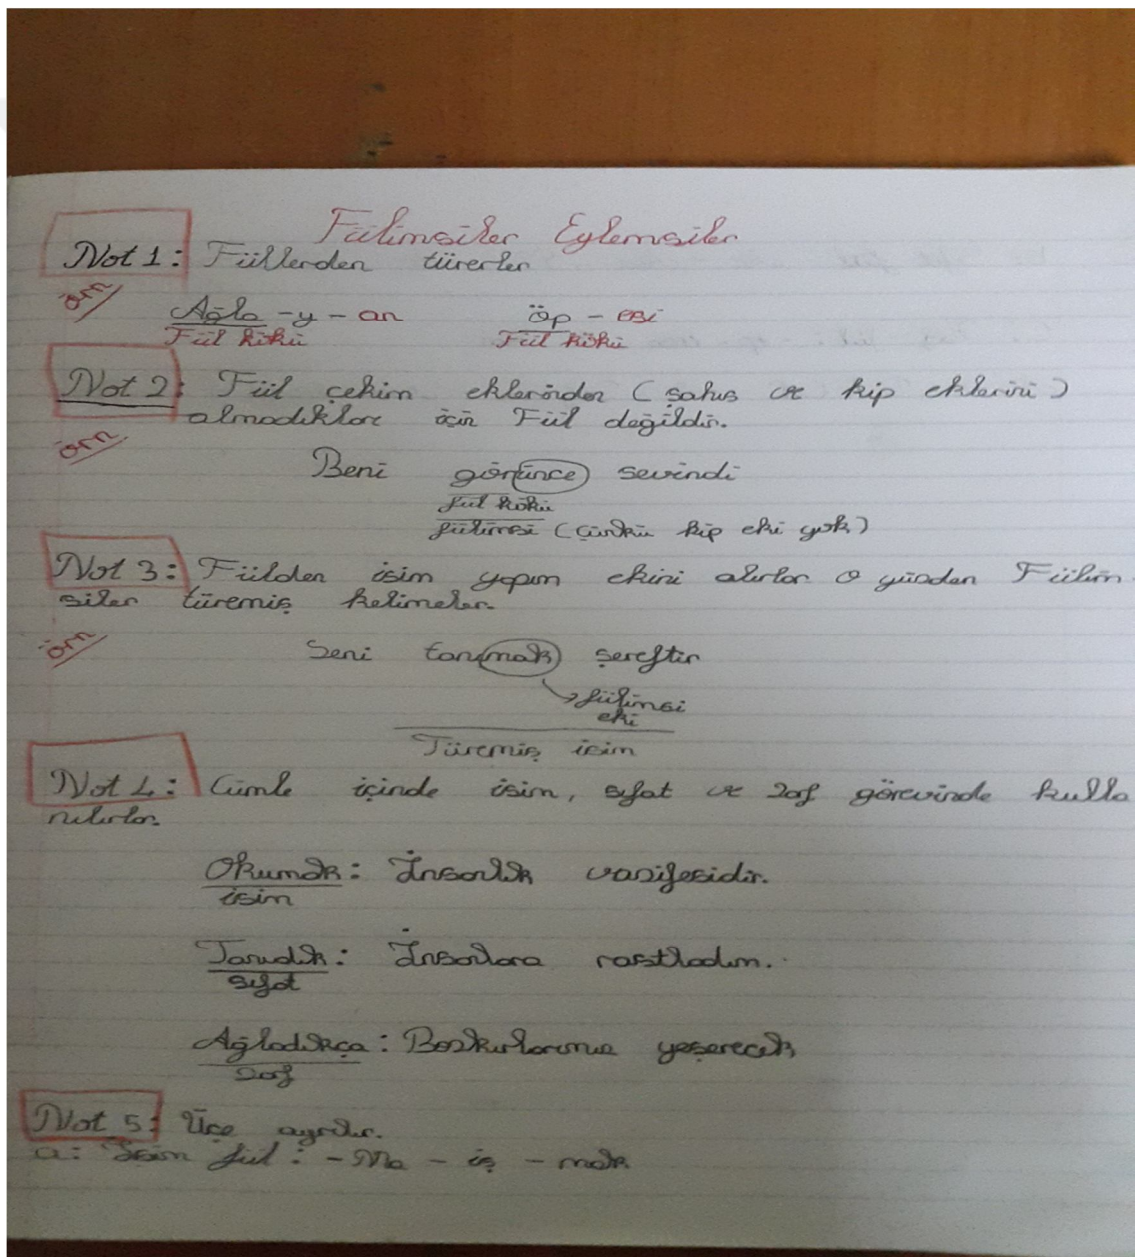 Fiilimsiler Eylemsiler
Not 1: Fiillerden türerler
örn
Ağla -y - an öp - esi
Fiil kökü Fiil kökü
Not 2: Fiil çekim eklerinden (şahıs ve kip eklerini)
almadıkları için Fiil değildir.
örn
Beni görünce sevindi
fiil kökü
fiilimsi (çünkü kip eki yok)
Not 3: Fiilden isim yapım ekini alırlar o yüzden Fiilim-
siler türemiş kelimeler.
örn
Seni tanımak şereftir
fiilimsi
eki
Türemiş isim
Not 4: Cümle içinde isim, sıfat ve zarf görevinde kulla
nılırlar.
Okumak: İnsanlık vazifesidir.
isim
Tanıdık: İnsanlara rastladım.
sıfat
Ağladıkça: Bozkırlarımız yeşerecek
zarf
Not 5: Üçe ayrılır.
a: İsim fiil: -Ma - iş - mak